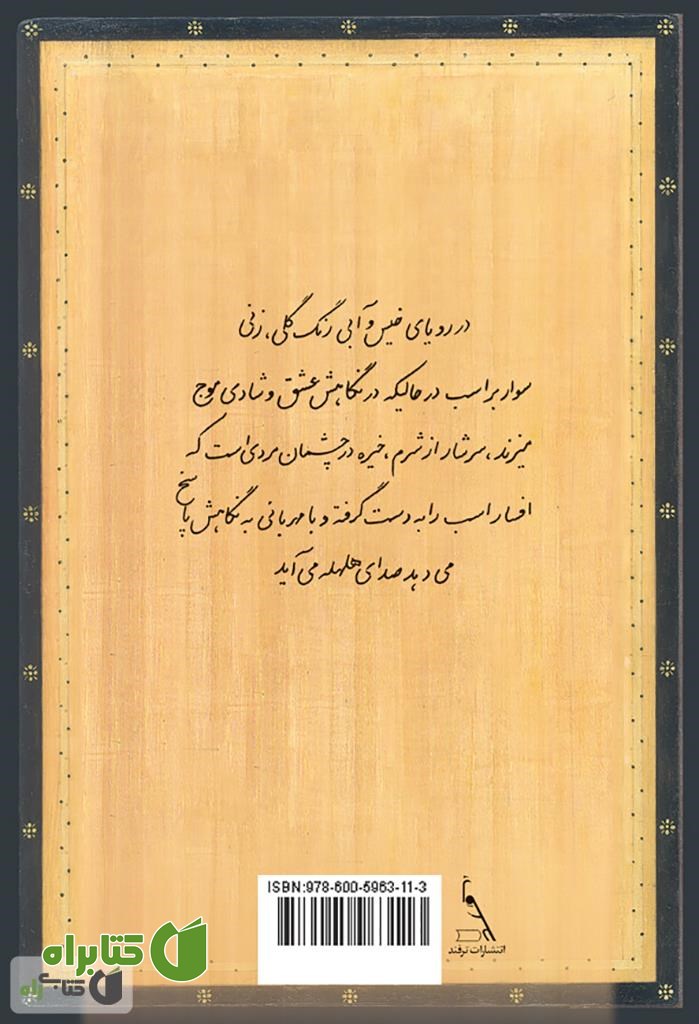 در رویای خیس و آبی رنگ گلی، زنی
سوار بر اسب در حالیکه در نگاهش عشق و شادی موج
میزند، سرشار از شرم، خیره در چشمان مردی است که
افسار اسب را به دست گرفته و با مهربانی به نگاهش پاسخ
می دهد صدای هلهله می آید
ISBN:978-600-5963-11-3
انتشارات ترفند
کتابراه
کتابی راه